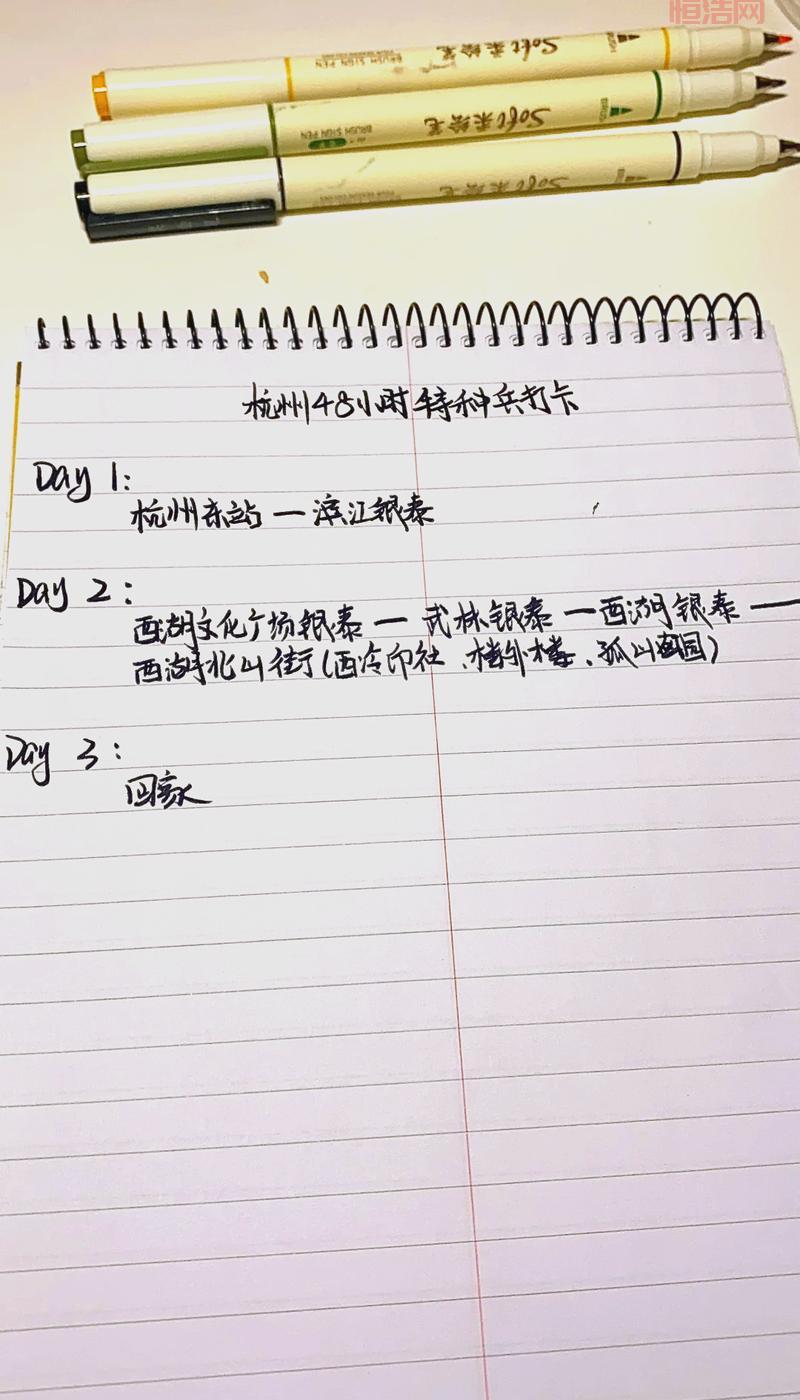 恒浩网
Soft柔绘笔
BRUSH SIGN PEN
BRUSH
Soft柔绘笔
BRUSH SIGN PEN
BRUSH
Soft柔绘笔
杭州48小时特种兵打卡
Day 1:
杭州东站 — 滨江银泰
Day 2:
西湖文化广场银泰 — 武林银泰 — 西湖银泰 —
西湖北山街(西冷印社、楼外楼、孤山
Day 3:
回家